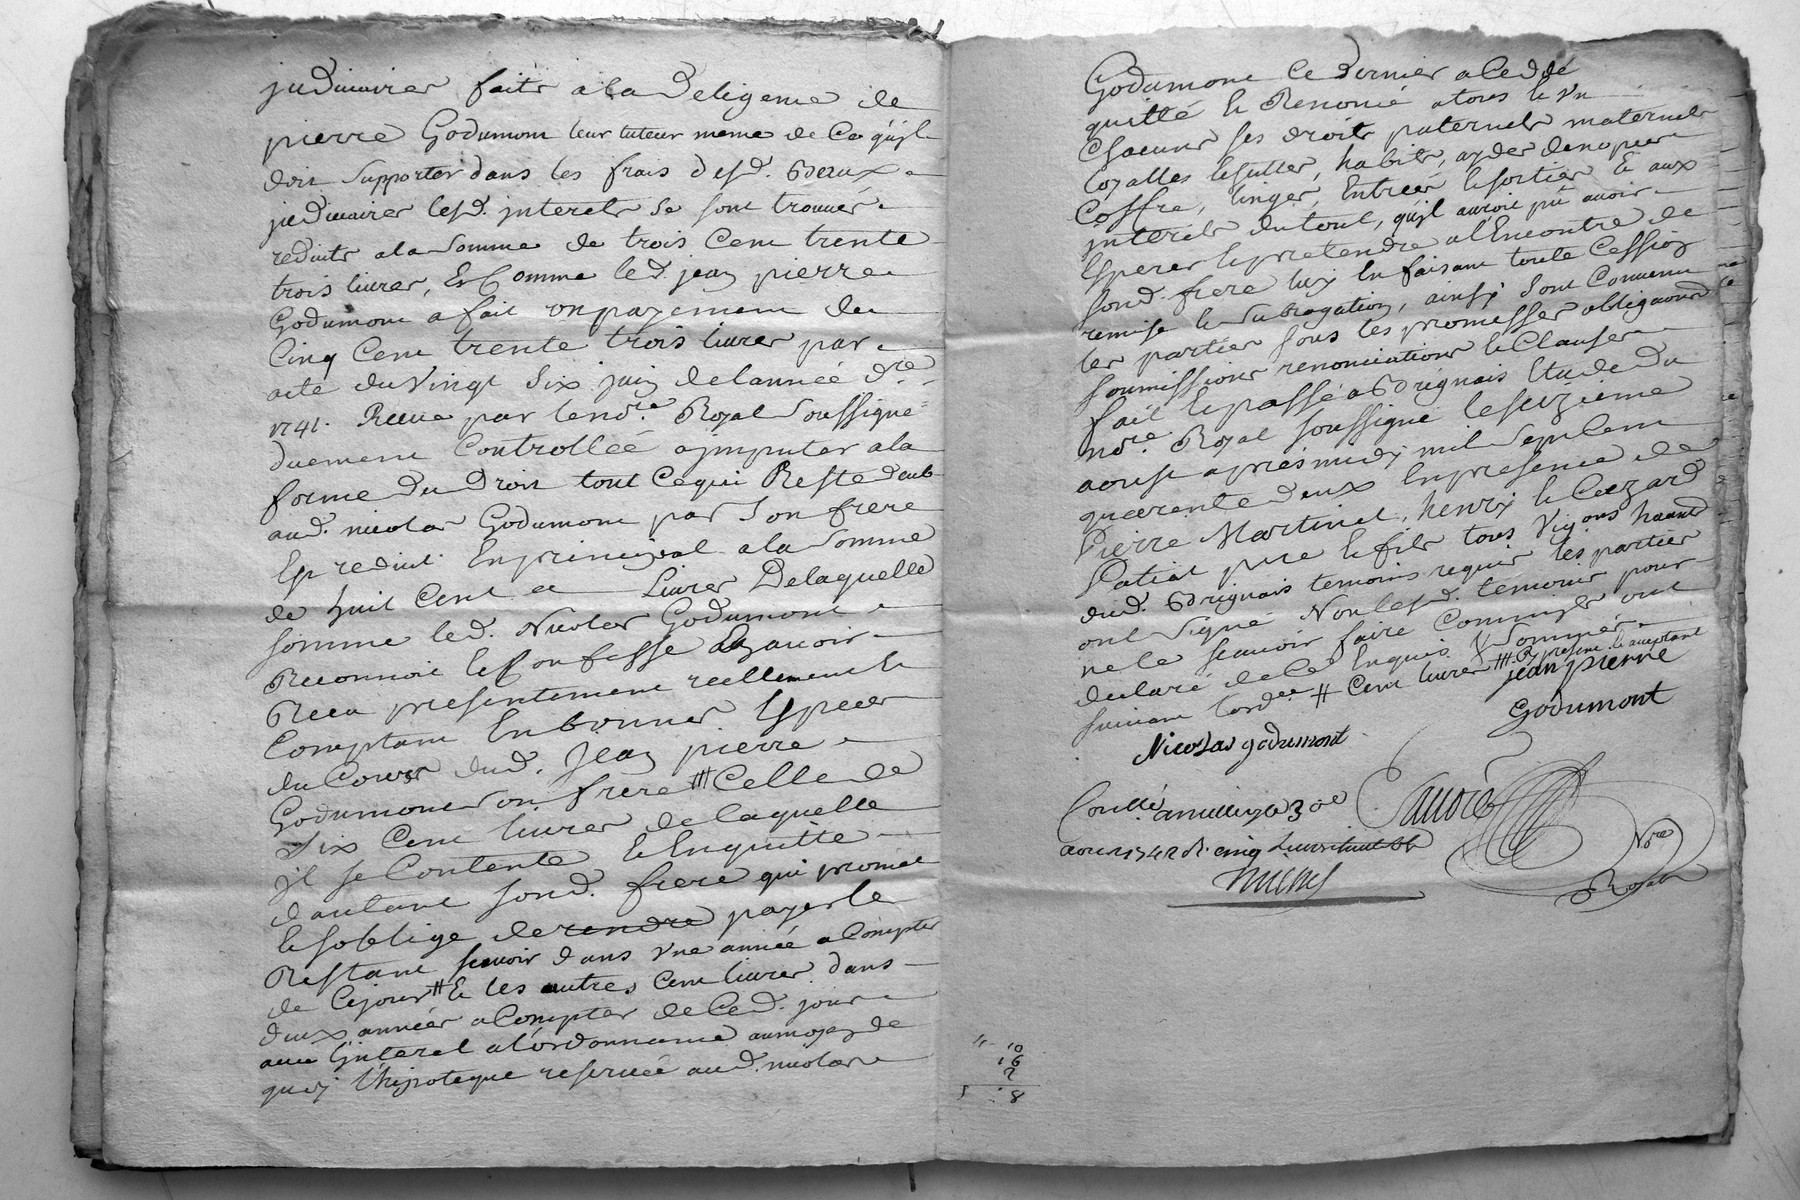 judiciaires faits a la deligence de
pierre Godumont leur tuteur meme de Ce quil
doit supporter dans les frais desd. Beaux
judiciaires lesd. interets se sont trouvés
reduits a la somme de trois Cent trente
trois livres, Et Comme led. jean pierre
Godumont a fait un payement de
Cinq Cent trente trois livres par
acte du vingt six juin de lannée dre
1741. Receu par le nore. Royal soussigné
duement Controllée a jmputer a la
forme du Droit tout Ce qui Reste deub
aud. nicolas Godumont par son frere
Est reduit En principal a la somme
de huit Cent livres De laquelle
somme led. Nicolas Godumont
Reconnoit et Confesse avoir
Receu presentement reellement et
Comptant En bonnes Especes
du Cours dud. Jean pierre
Godumont son frere # Celle de
six Cent livres de laquelle
jl se Contente et Enquitte
dautant sond. frere qui promet
et soblige de rendre payer le
Restant scavoir dans une année a Compter
de Ce jour # Et les autres Cent livres dans
deux années a Compter de Ced. jour
avec Ginteret a lordonnance au moyen de
quoy lhipoteque reservée aud. nicolas
Godumont Ce dernier a Cedde
quitté et Renoncé a tous et un
Chacuns ses droits paternels maternels
loyalles et suittes, habits, ayder denopces
Coffre, linges, Entrées et sorties Et aux
interets du tout, quil auroit pû avoir
Esperer et pretendre a lEncontre de
sond. frere luy En faisant toute Cession
remise et subrogation, ainsy sont Convenu
les parties sous les promesses obligaons
soumissions renonciations et Clauses
fait et passé a Brignais Etude du
nore. Royal soussigné le seizieme
aoust apres midy mil sept Cent
quarente deux En presence de
Pierre Martinet, henry et Cezard
Patiat pere et fils tous vignons hants
dud. Brignais temoins requis les parties
ont signé Non lesd. temoins pour
ne le scavoir faire Comme jls ont
declaré de Ce Enquis et sommés
suivant lordce # Cent livres # present et acceptant
jean pierre
Godumont
Nicolas godumont
Conllé a milliry le 30e
aoust 1742 R. cinq livres huit s.
Nre
Royal
10
16
2
8